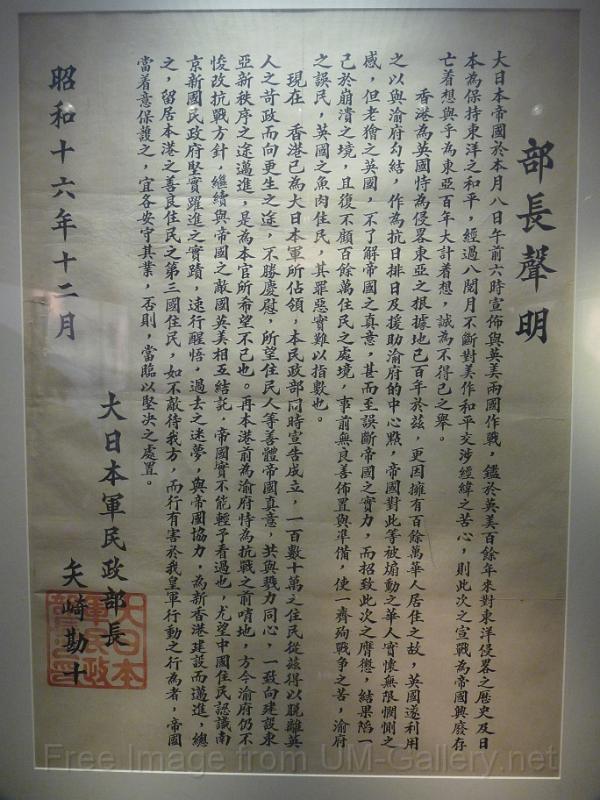 部長聲明
大日本帝國於本月八日午前六時宣佈與英美兩國作戰，鑑於英美百餘年來對東洋侵畧之歷史及日
本為保持東洋之和平，經過八閱月不斷對美作和平交涉經緯之苦心，則此次之宣戰為帝國興廢存
亡着想與乎為東亞百年大計着想，誠為不得已之舉。
香港為英國恃為侵畧東亞之根據地已百年於茲，更因擁有百餘萬華人居住之故，英國遂利用
之以與渝府勾結，作為抗日排日及援助渝府的中心點，帝國對此等被煽動之華人實懷無限憫惻之
感，但老獪之英國，不了解帝國之真意，甚而至誤斷帝國之實力，而招致此次之膺懲，結果陷一
己於崩潰之境，且復不顧百餘萬住民之處境，事前無良善佈置與準備，使一齊殉戰爭之苦，渝府
之誤民，英國之魚肉住民，其罪惡實難以指數也。
現在　香港已為大日本軍所佔領，本民政部同時宣告成立，一百數十萬之住民從茲得以脫離英
人之苛政而向更生之途，不勝慶慰，所望住民人等善體帝國真意，共與戮力同心，一致向建設東
亞新秩序之途邁進，是為本官所希望不已也。再本港前為渝府恃為抗戰之前哨地，方今渝府仍不
悛改抗戰方針，繼續與帝國之敵國英美相互結託，帝國實不能輕予看過也，尤望中國住民認識南
京新國民政府堅實躍進之實蹟，速行醒悟，過去之迷夢，與帝國協力，為新香港建設而邁進，總
之，留居本港之善良住民之第三國住民，如不敵待我方，而行有害於我皇軍行動之行為者，帝國
當着意保護之，宜各安守其業，否則，當臨以堅決之處置。
昭和十六年十二月
大日本軍民政部長
矢崎勘十
大日本
軍民政
部長印
Free Image from UM-Gallery.net